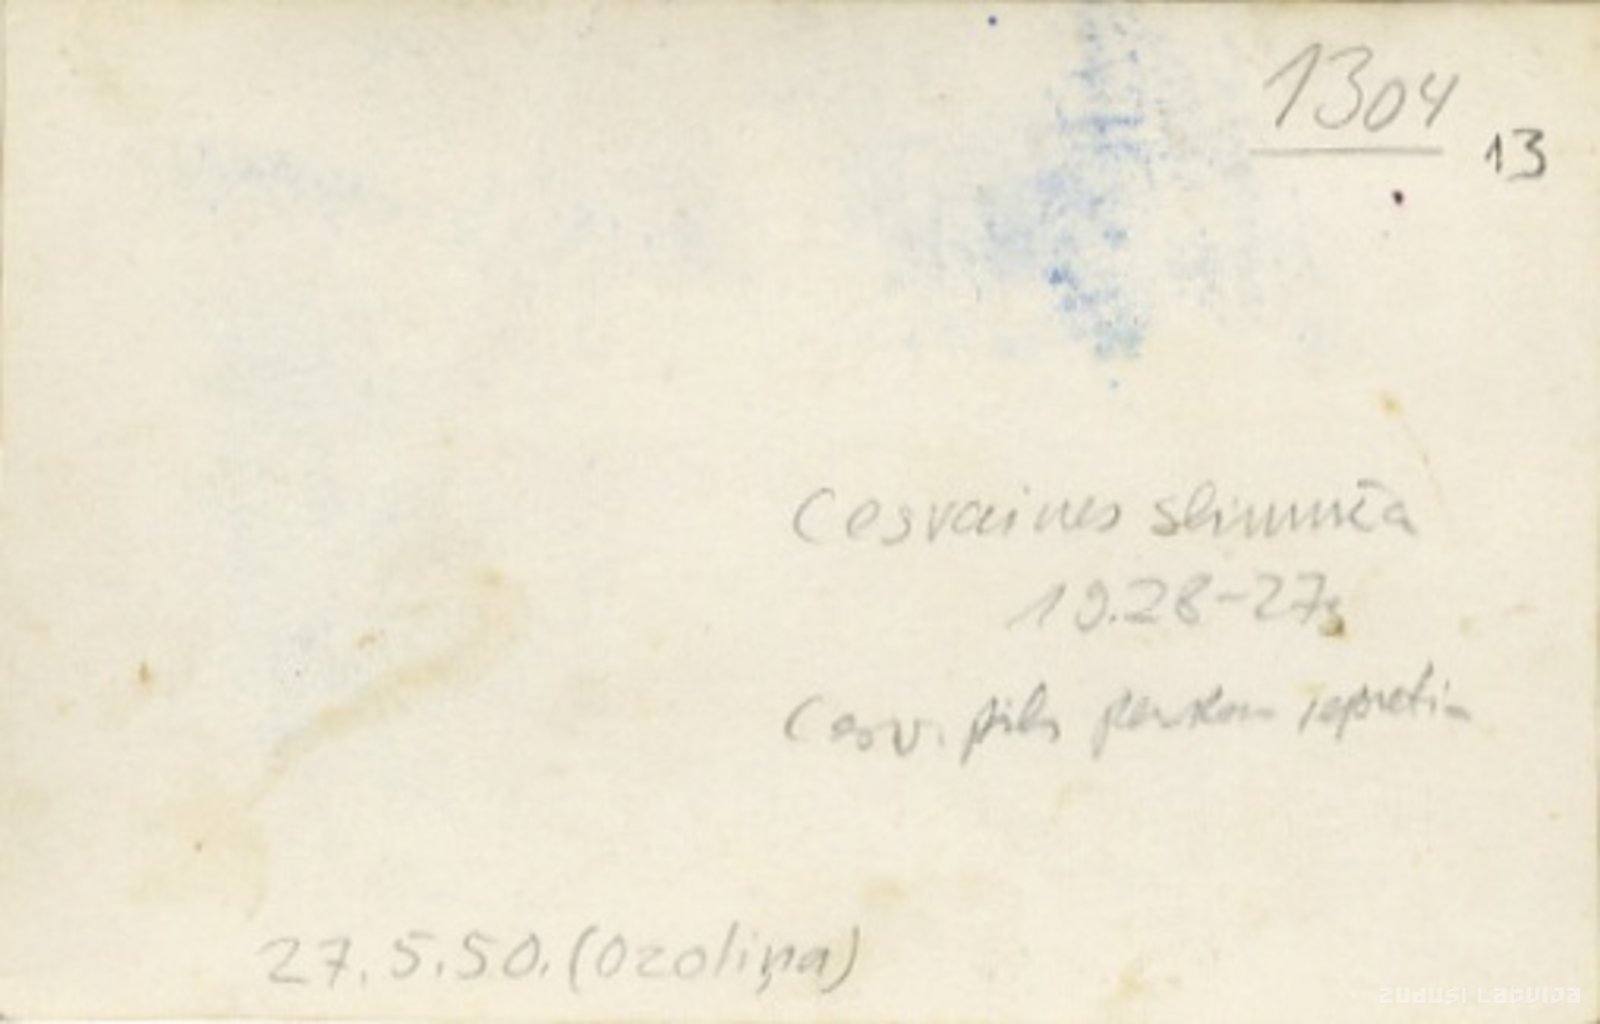 1304
13
Cesvaines slimnīca
19.28-27
Cesv. pils
27.5.50. (Ozoliņa)
ZUDUSI LATVIJA